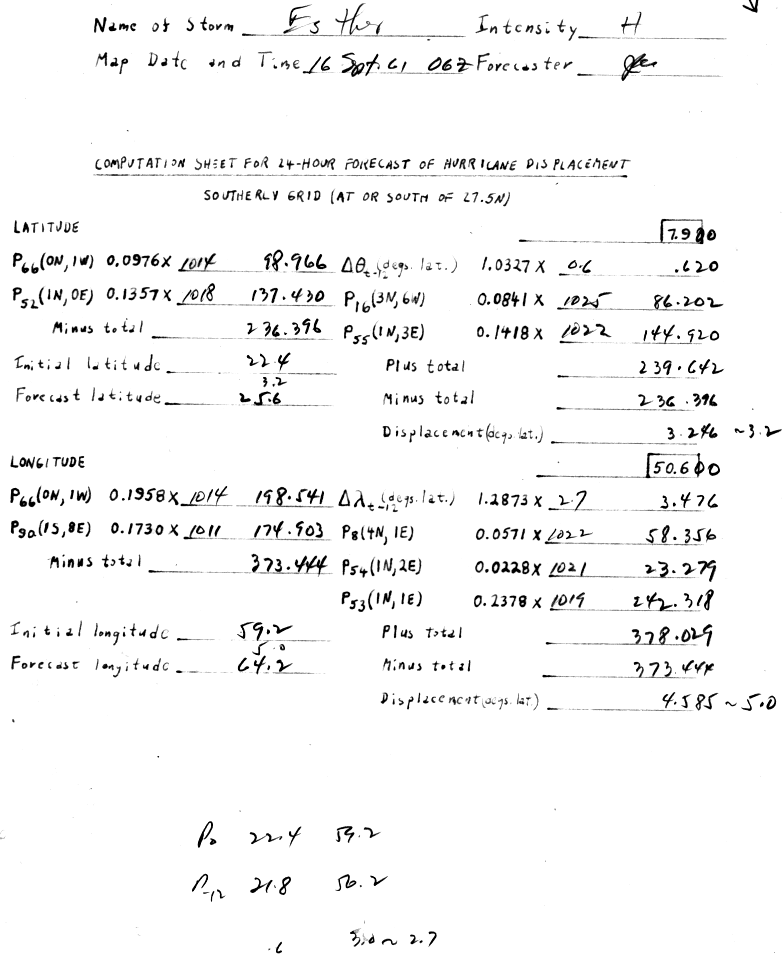 Name of Storm Esther Intensity H
Map Date and Time 16 Sept. 61 06Z Forecaster
COMPUTATION SHEET FOR 24-HOUR FORECAST OF HURRICANE DISPLACEMENT
SOUTHERLY GRID (AT OR SOUTH OF 27.5N)
LATITUDE 7.980
P66(0N, 1W) 0.0976 X 1014 98.966 Δθt-12(degs. lat.) 1.0327 X 0.6 .620
P52(1N, 0E) 0.1357 X 1018 137.430 P16(3N, 6W) 0.0841 X 1025 86.202
Minus total 236.396 P55(1N, 3E) 0.1418 X 1022 144.920
Initial latitude 22.4 Plus total 239.642
3.2
Forecast latitude 25.6 Minus total 236.396
Displacement(degs. lat.) 3.246 ~3.2
LONGITUDE 50.600
P66(0N, 1W) 0.1958 X 1014 198.541 Δλt-12(degs. lat.) 1.2873 X 2.7 3.476
P90(1S, 8E) 0.1730 X 1011 174.903 P8(4N, 1E) 0.0571 X 1022 58.356
Minus total 373.444 P54(1N, 2E) 0.0228 X 1021 23.279
P53(1N, 1E) 0.2378 X 1019 242.318
Initial longitude 59.2 Plus total 378.029
5.0
Forecast longitude 64.2 Minus total 373.444
Displacement(degs. lat.) 4.585 ~ 5.0
P0 22.4 59.2
P-12 21.8 56.2
.6 3.0 ~ 2.7